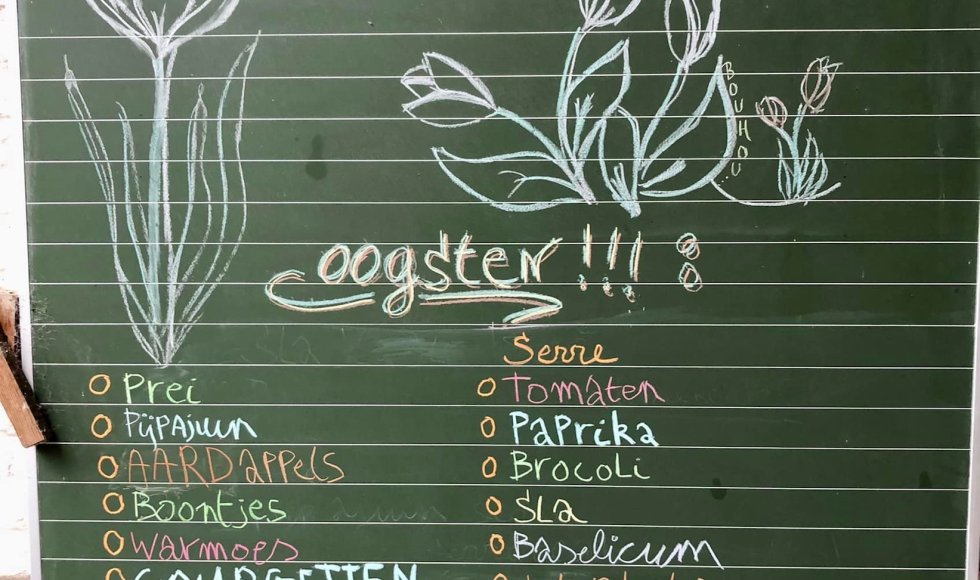 BOUHOU
oogsten!!! :
Serre
Prei
Pijpajuun
AARDappels
Boontjes
Warmoes
COURGETTEN
Tomaten
Paprika
Brocoli
Sla
Baselicum